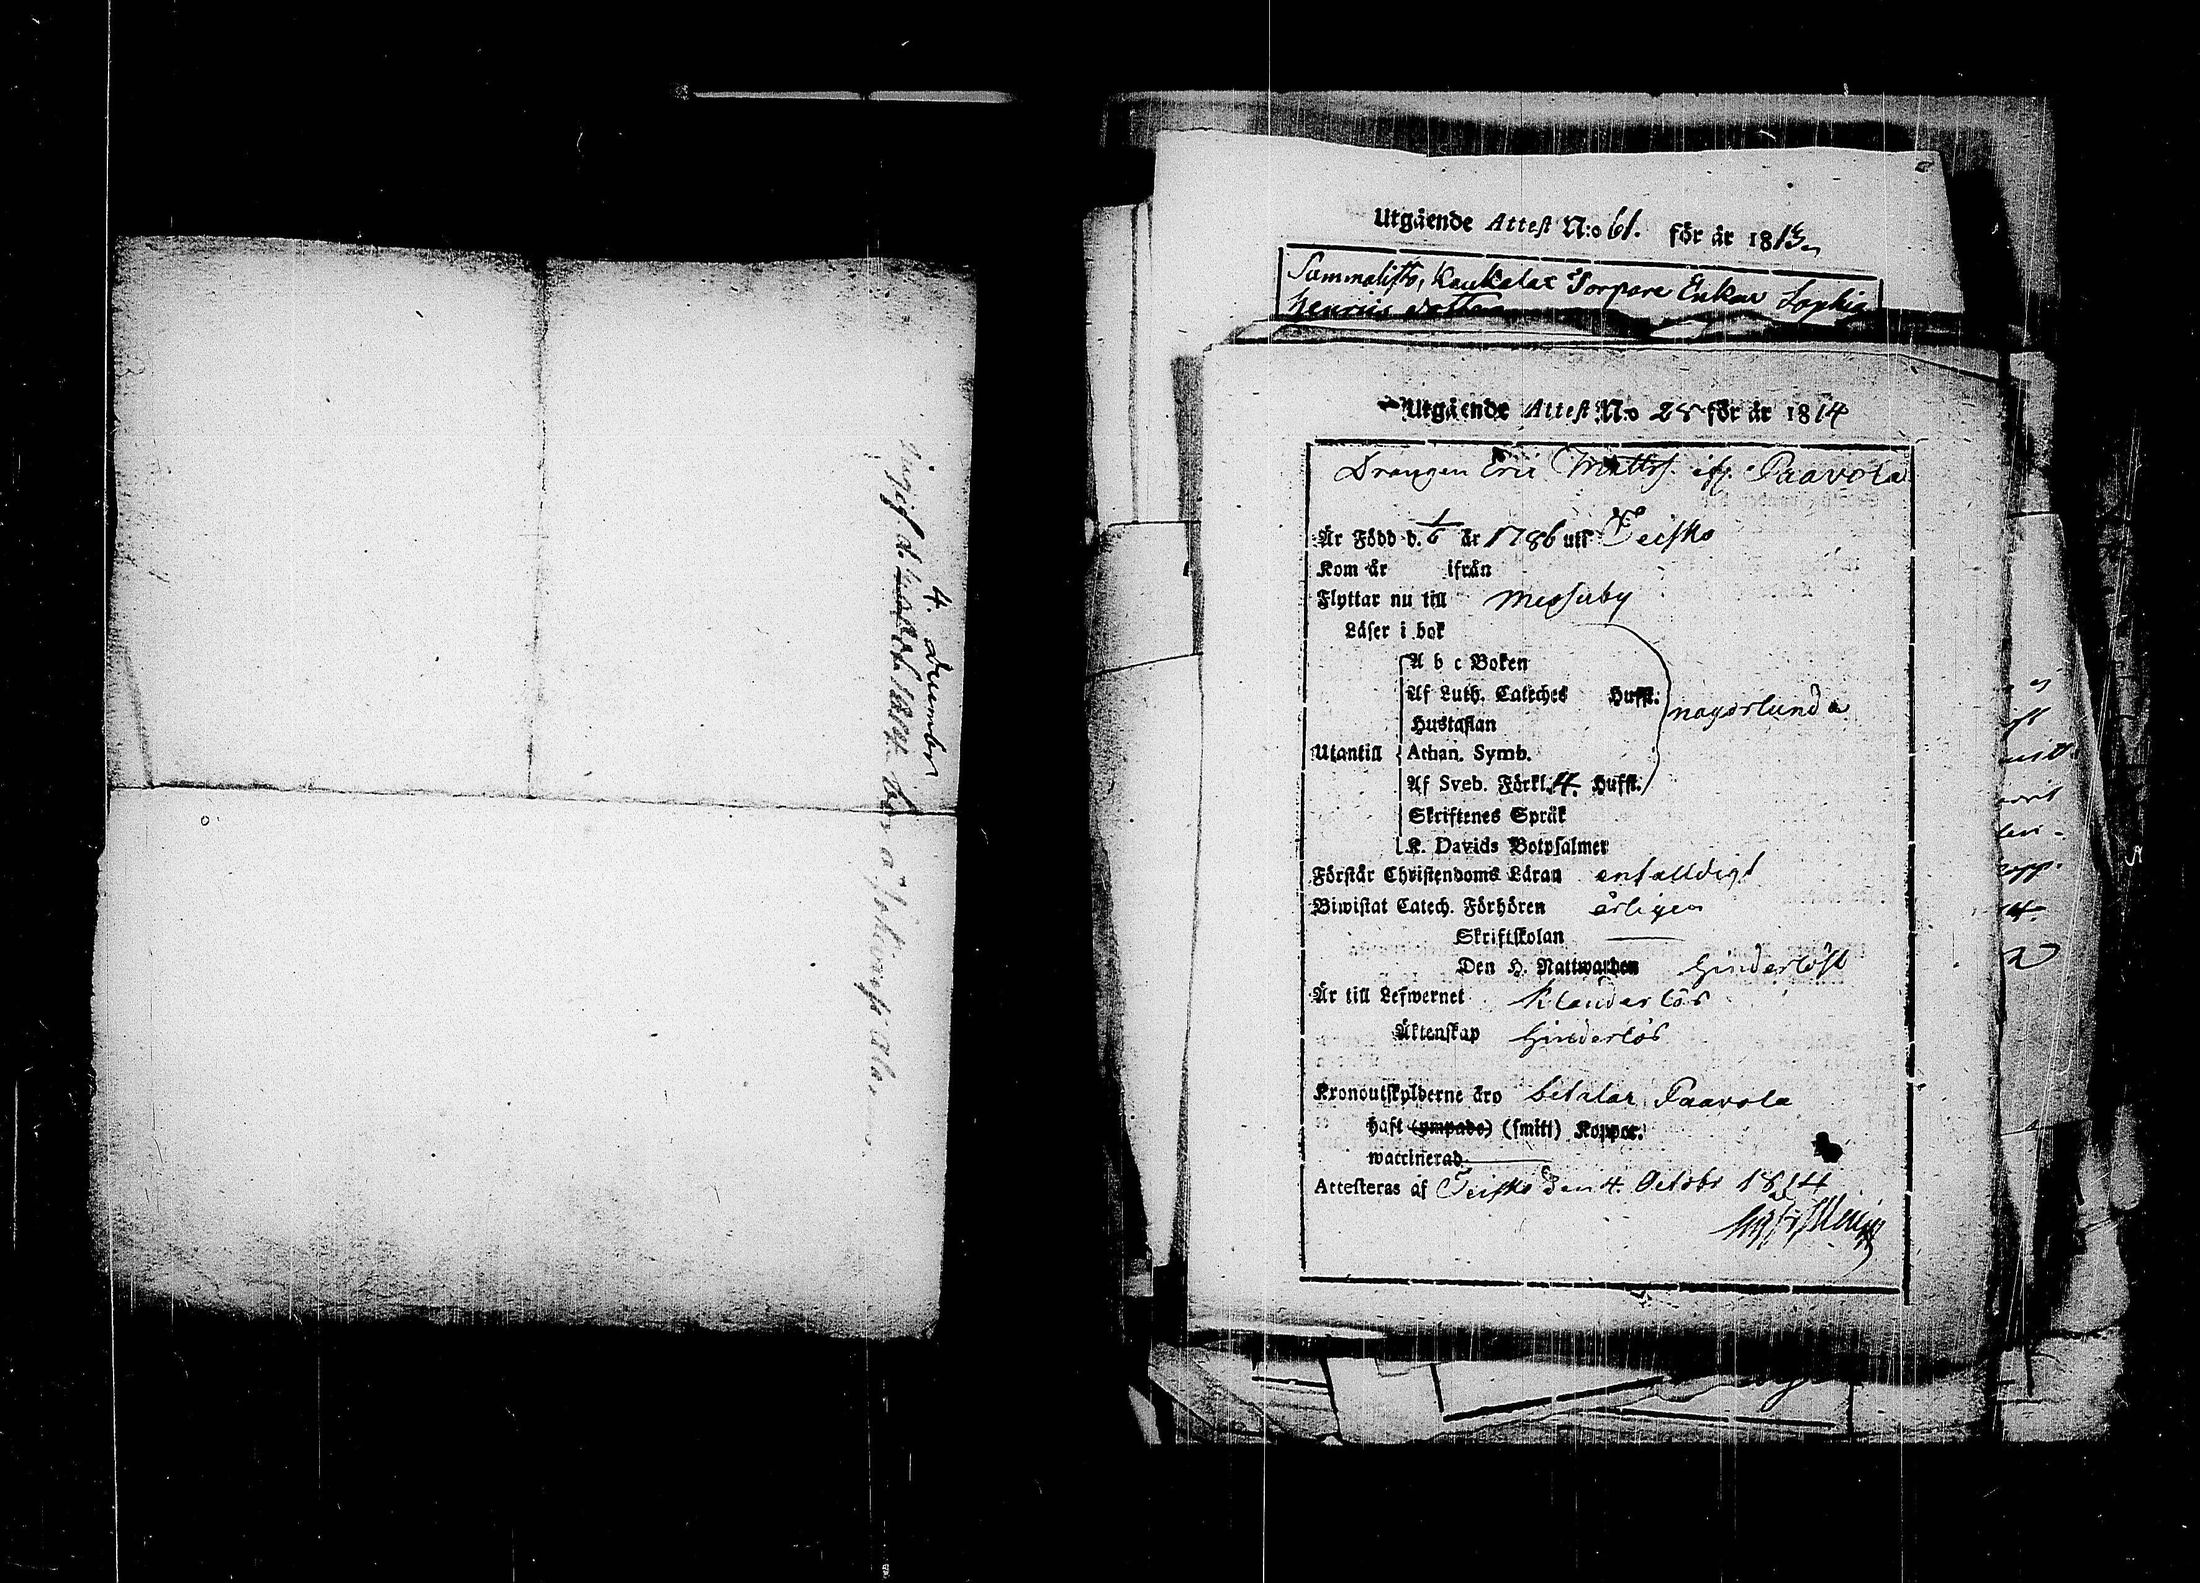 4. December
d. 1814
Utgående Attest N:o 61. för år 1813
Sammalisto, Kaukalax Torpare Enkan Sophia
Henrics dotter
Utgående Attest N:o 28 för år 1814
Drängen Eric Matts. ifr. Paavola
Är Född d. 1/6 år 1786 uti Teisko
Kom år ifrån
Flyttar nu till Messuby
Läser i bok
A b c Boken
Af Luth. Cateches Hufst.
någorlunda
Hustaflan
Utantill Athan. Symb.
Af Sveb. Förkl. 4. Hufst.
Skriftenes Språk
K. Davids Botpsalmer
Förstår Christendoms Läran enfalldigt
Biwistat Catech. Förhören årligen
Skriftskolan —
Den H. Nattwarden hinderlöst
Är till Lefwernet klanderlös
Äktenskap hinderlös
Kronoutskylderne äro betalar Paavola
haft (ympade) (smitt) Koppor.
waccinerad —
Attesteras af Teisko den 4. Octobr 1814